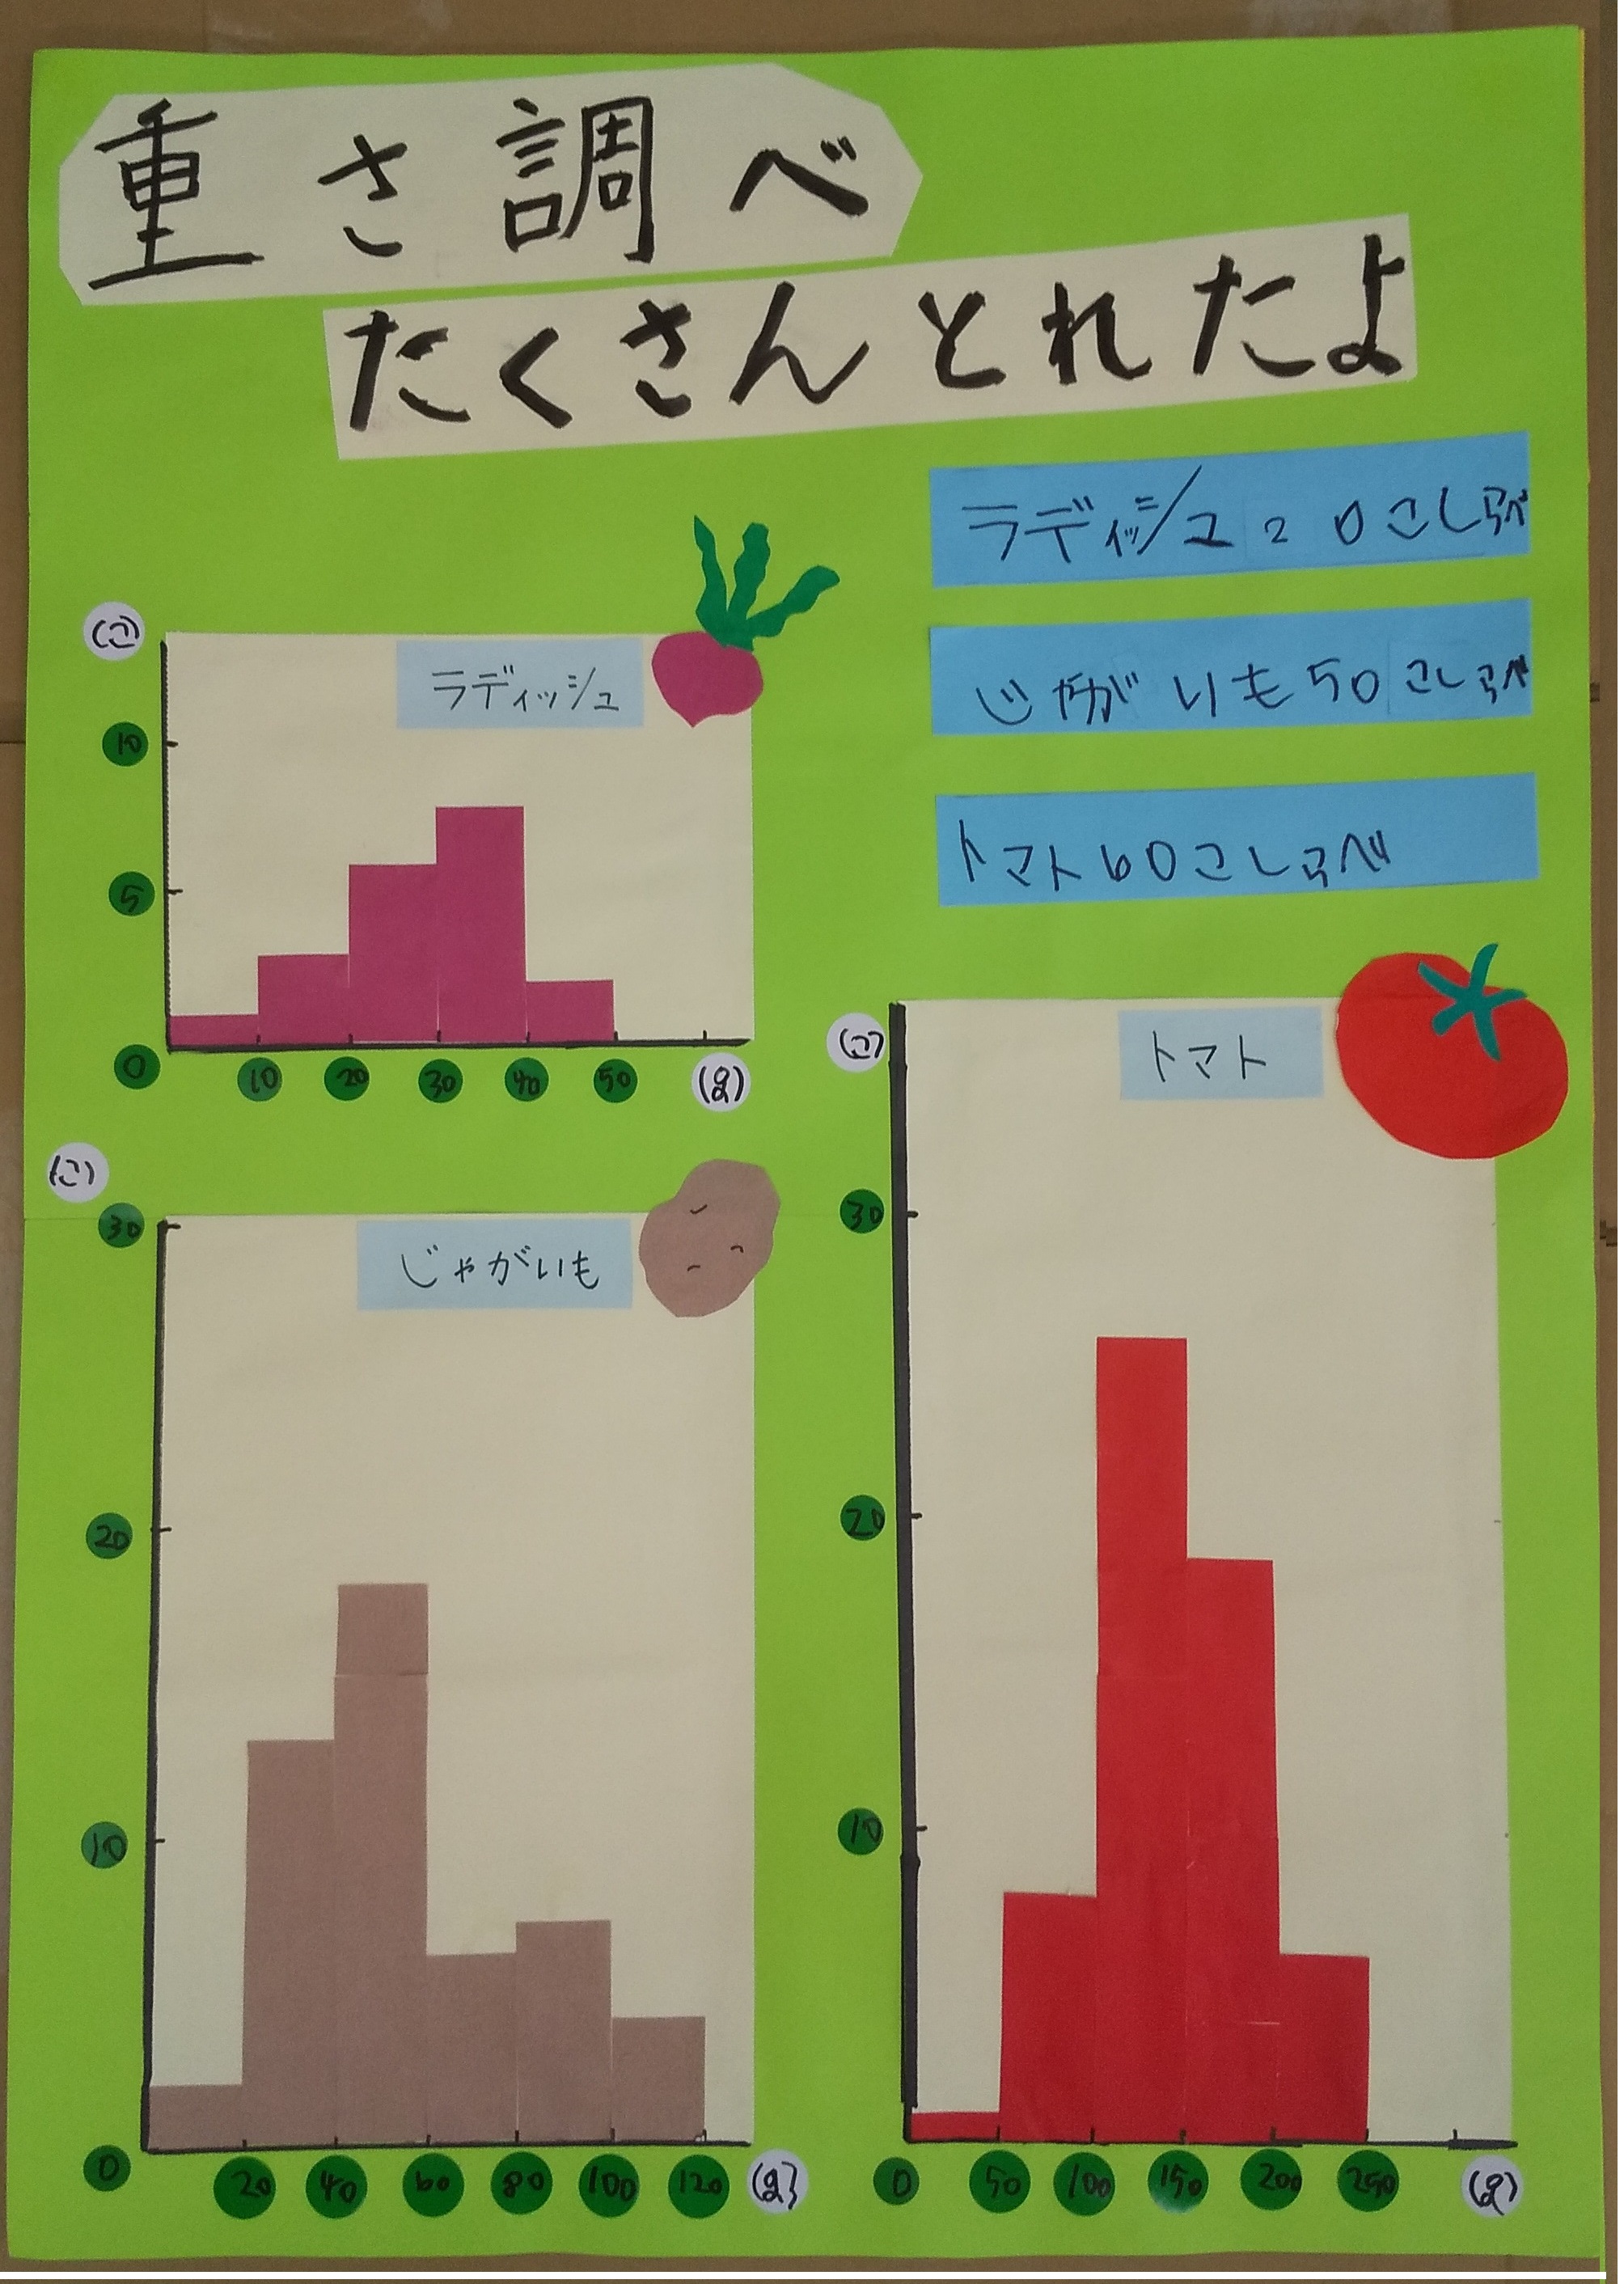 重さ調べ
たくさんとれたよ
ラディッシュ20こしらべ
じゃがいも50こしらべ
トマト60こしらべ
(こ)
ラディッシュ
10
5
0
10 20 30 40 50 (g)
(こ)
じゃがいも
30
20
10
0
20 40 60 80 100 120 (g)
(こ)
トマト
30
20
10
0 50 100 150 200 250 (g)